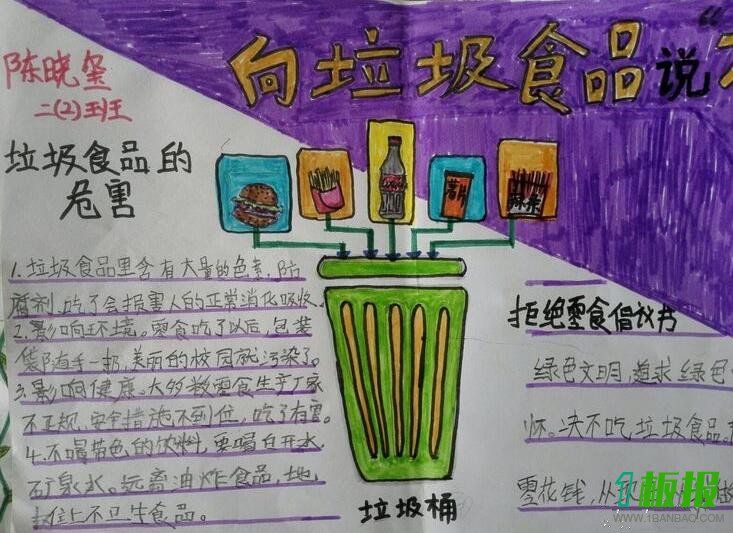 向垃圾食品说“不
陈晓玺
二(2)班
垃圾食品的
危害
薯片
辣条
1.垃圾食品里含有大量的色素,防
腐剂,吃了会损害人的正常消化吸收。
2.影响环境。零食吃了以后,包装
袋随手一扔,美丽的校园就污染了。
3.影响健康。大多数零食生产厂家
不正规,安全措施不到位,吃了有害。
4.不喝带色的饮料,要喝白开水
矿泉水。远离油炸食品,地
摊上不卫生食品。
垃圾桶
拒绝零食倡议书
绿色文明,追求绿色
怀。决不吃垃圾食品。
零花钱,从
做
1板报
WWW.1BANBAO.COM